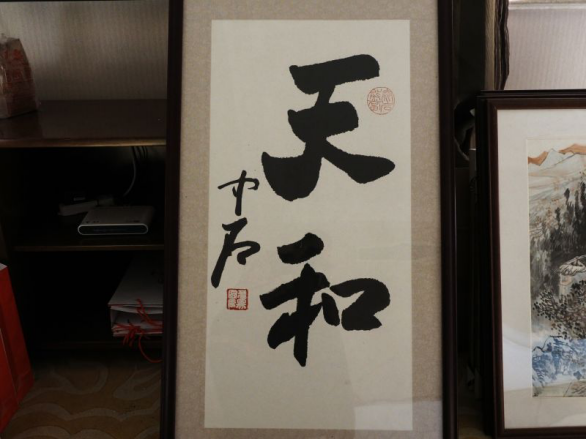 天和
中石